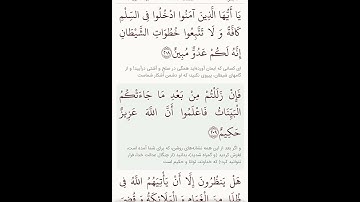 يَا أَيُّهَا الَّذِينَ آمَنُوا ادْخُلُوا فِي السِّلْمِ
كَافَّةً وَ لَا تَتَّبِعُوا خُطُوَاتِ الشَّيْطَانِ
إِنَّهُ لَكُمْ عَدُوٌّ مُبِينٌ ﴿۲۰۸﴾
ای کسانی که ایمان آورده‌اید همگی در صلح و آشتی درآیید! و از
گامهای شیطان، پیروی نکنید؛ که او دشمن آشکار شماست
فَإِنْ زَلَلْتُمْ مِنْ بَعْدِ مَا جَاءَتْكُمُ
الْبَيِّنَاتُ فَاعْلَمُوا أَنَّ اللَّهَ عَزِيزٌ
حَكِيمٌ ﴿۲۰۹﴾
و اگر بعد از این همه نشانه‌های روشن، که برای شما آمده است،
لغزش کردید (و گمراه شدید)، بدانید
که خداوند، توانا و حکیم است
هَلْ يَنْظُرُونَ إِلَّا أَنْ يَأْتِيَهُمُ اللَّهُ فِي
ظُلَلٍ مِنَ الْغَمَامِ وَ الْمَلَائِكَةُ وَ قُضِيَ